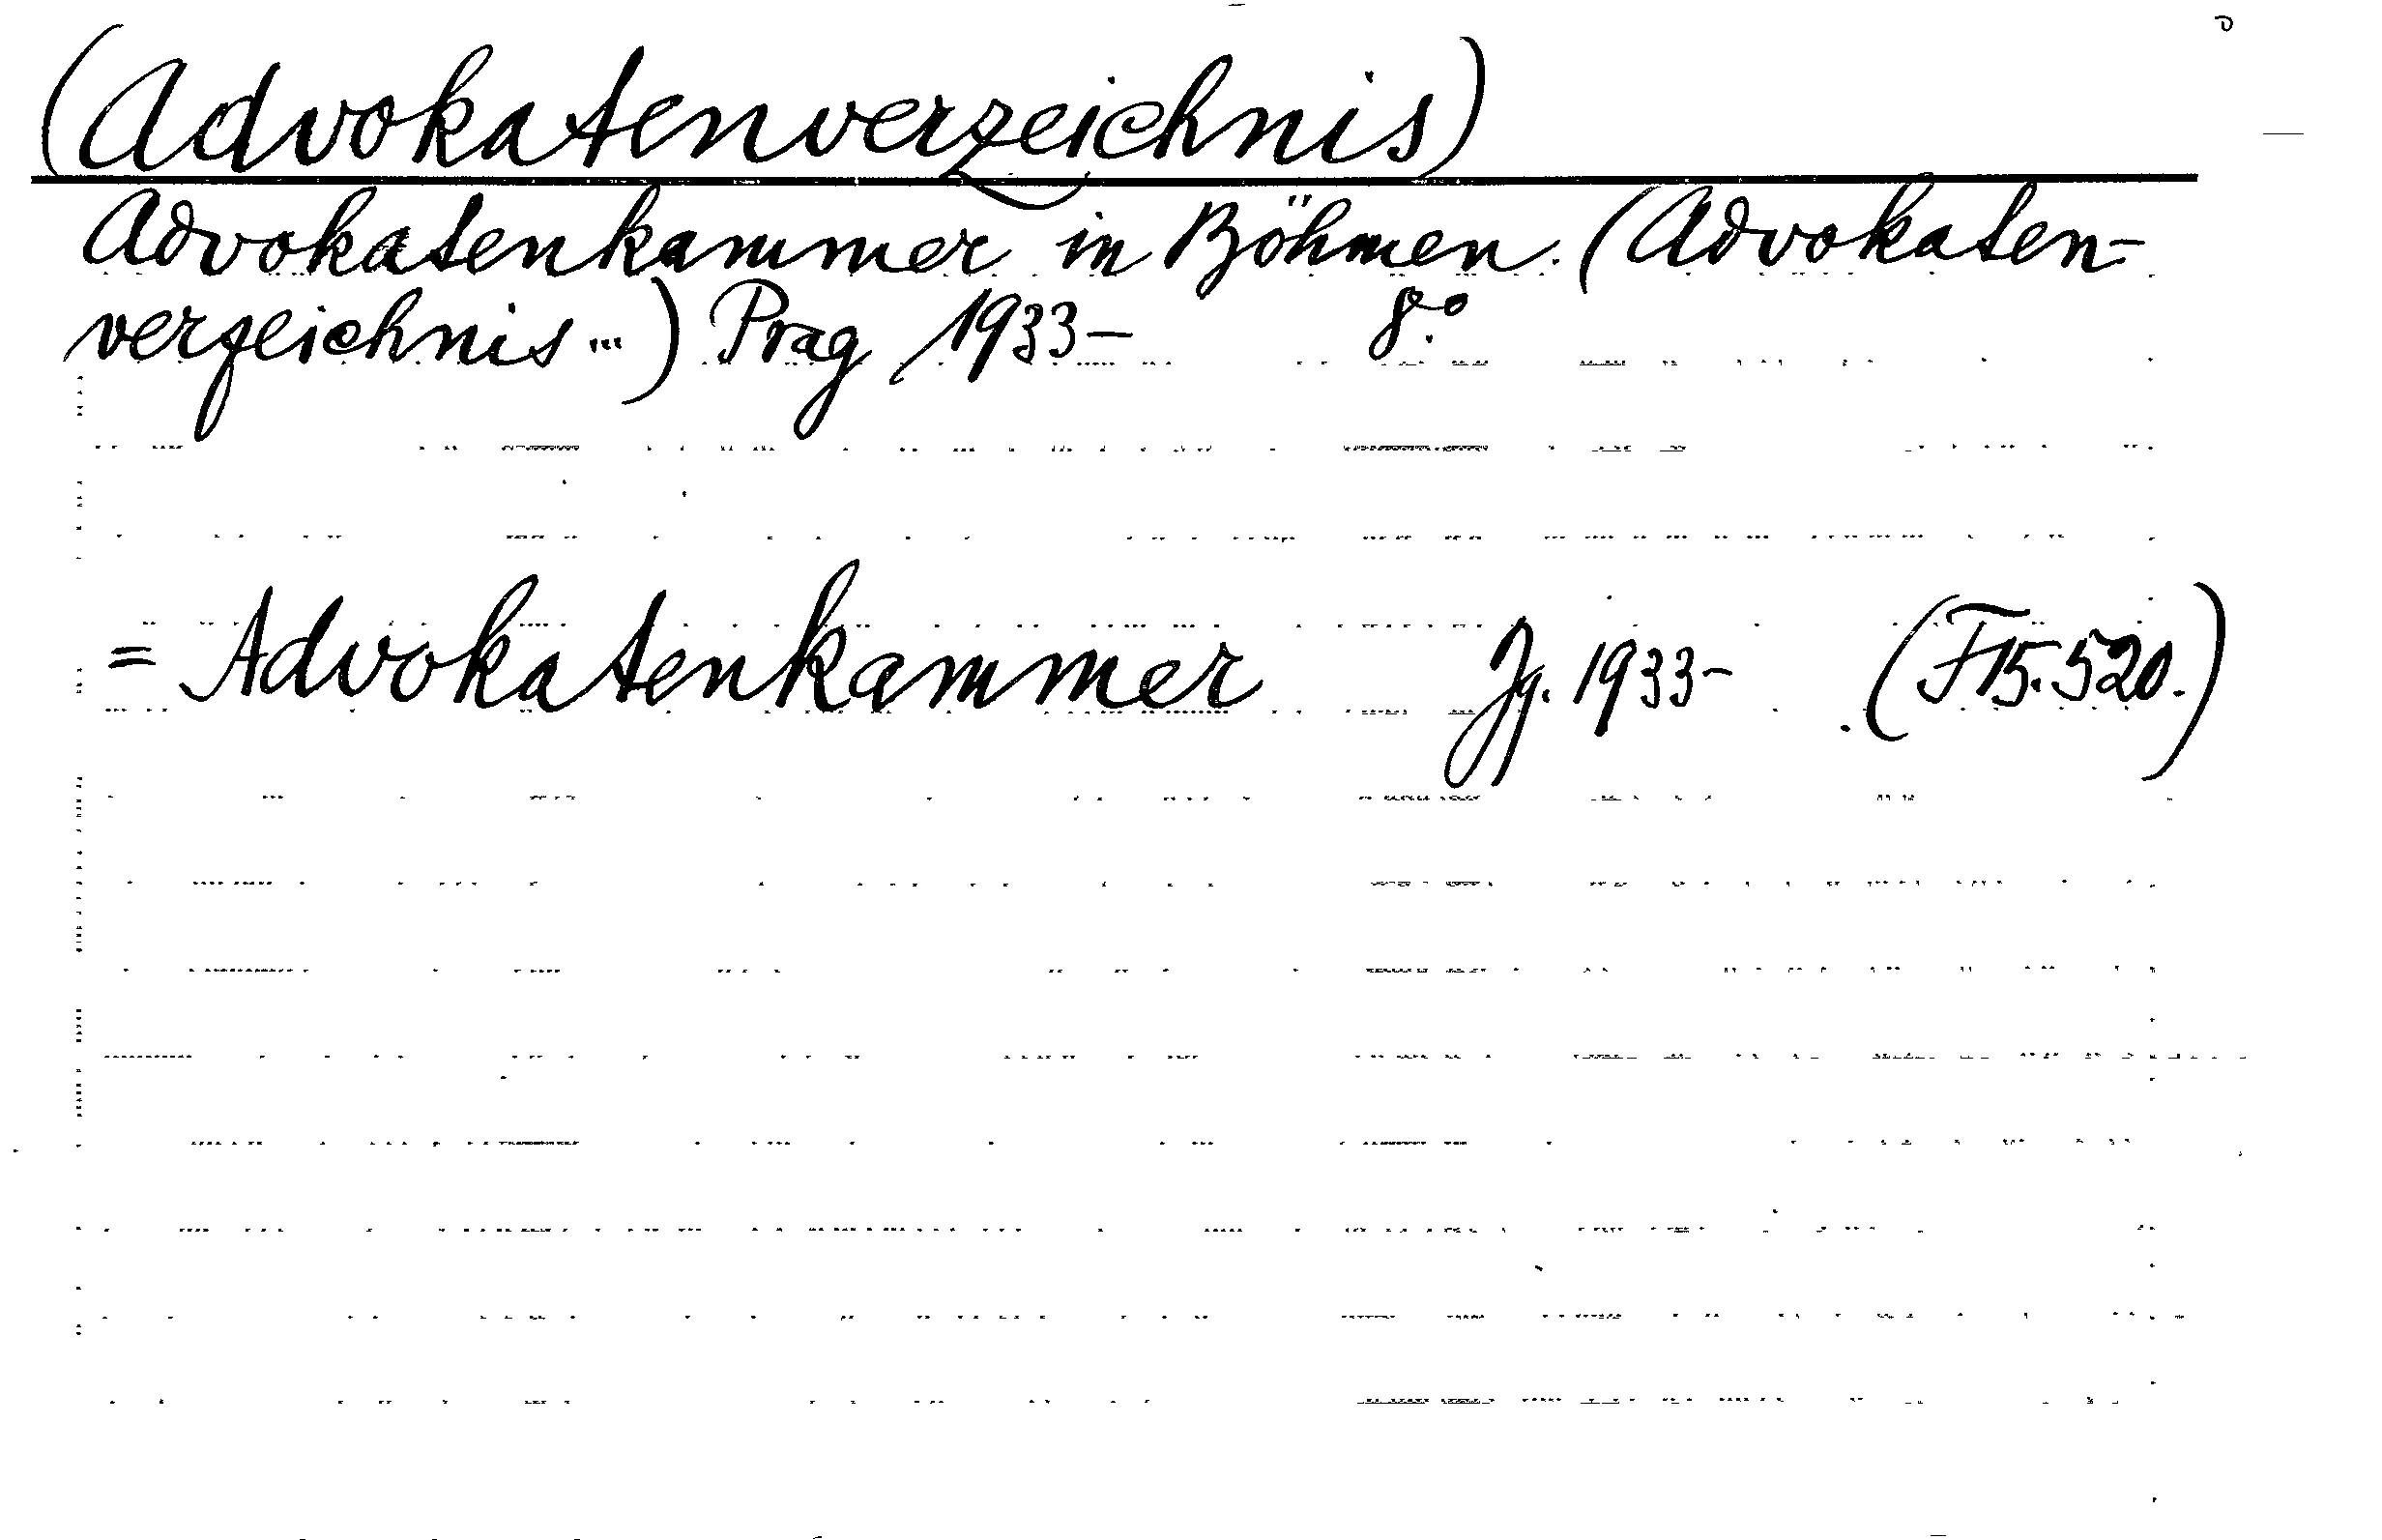 (Advokatenverzeichnis)
Advokatenkammer in Böhmen. (Advokaten-
verzeichnis...) Prag 1933- 8.°
= Advokatenkammer Jg. 1933- (F15.520.)